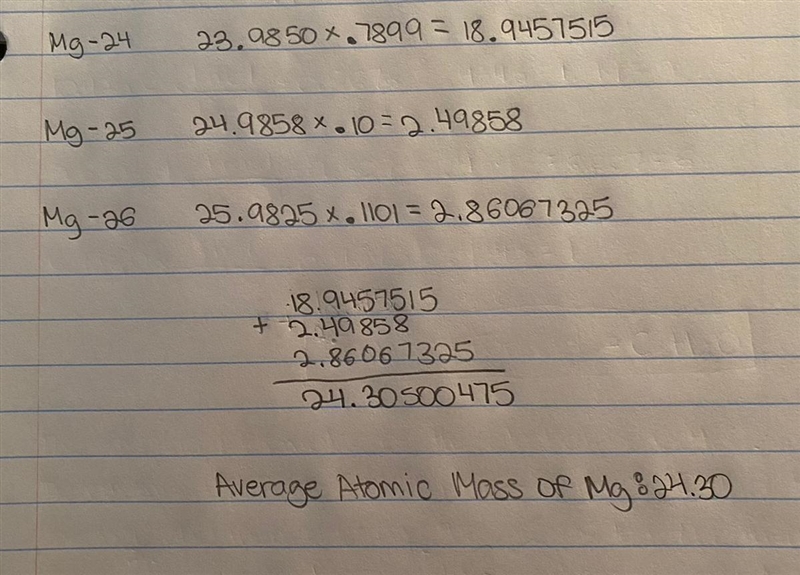 Mg-24 23.9850 x .7899 = 18.9457515
Mg-25 24.9858 x .10 = 2.49858
Mg-26 25.9825 x .1101 = 2.86067325
18.9457515
+ 2.49858
2.86067325
24.30500475
Average Atomic Mass of Mg: 24.30